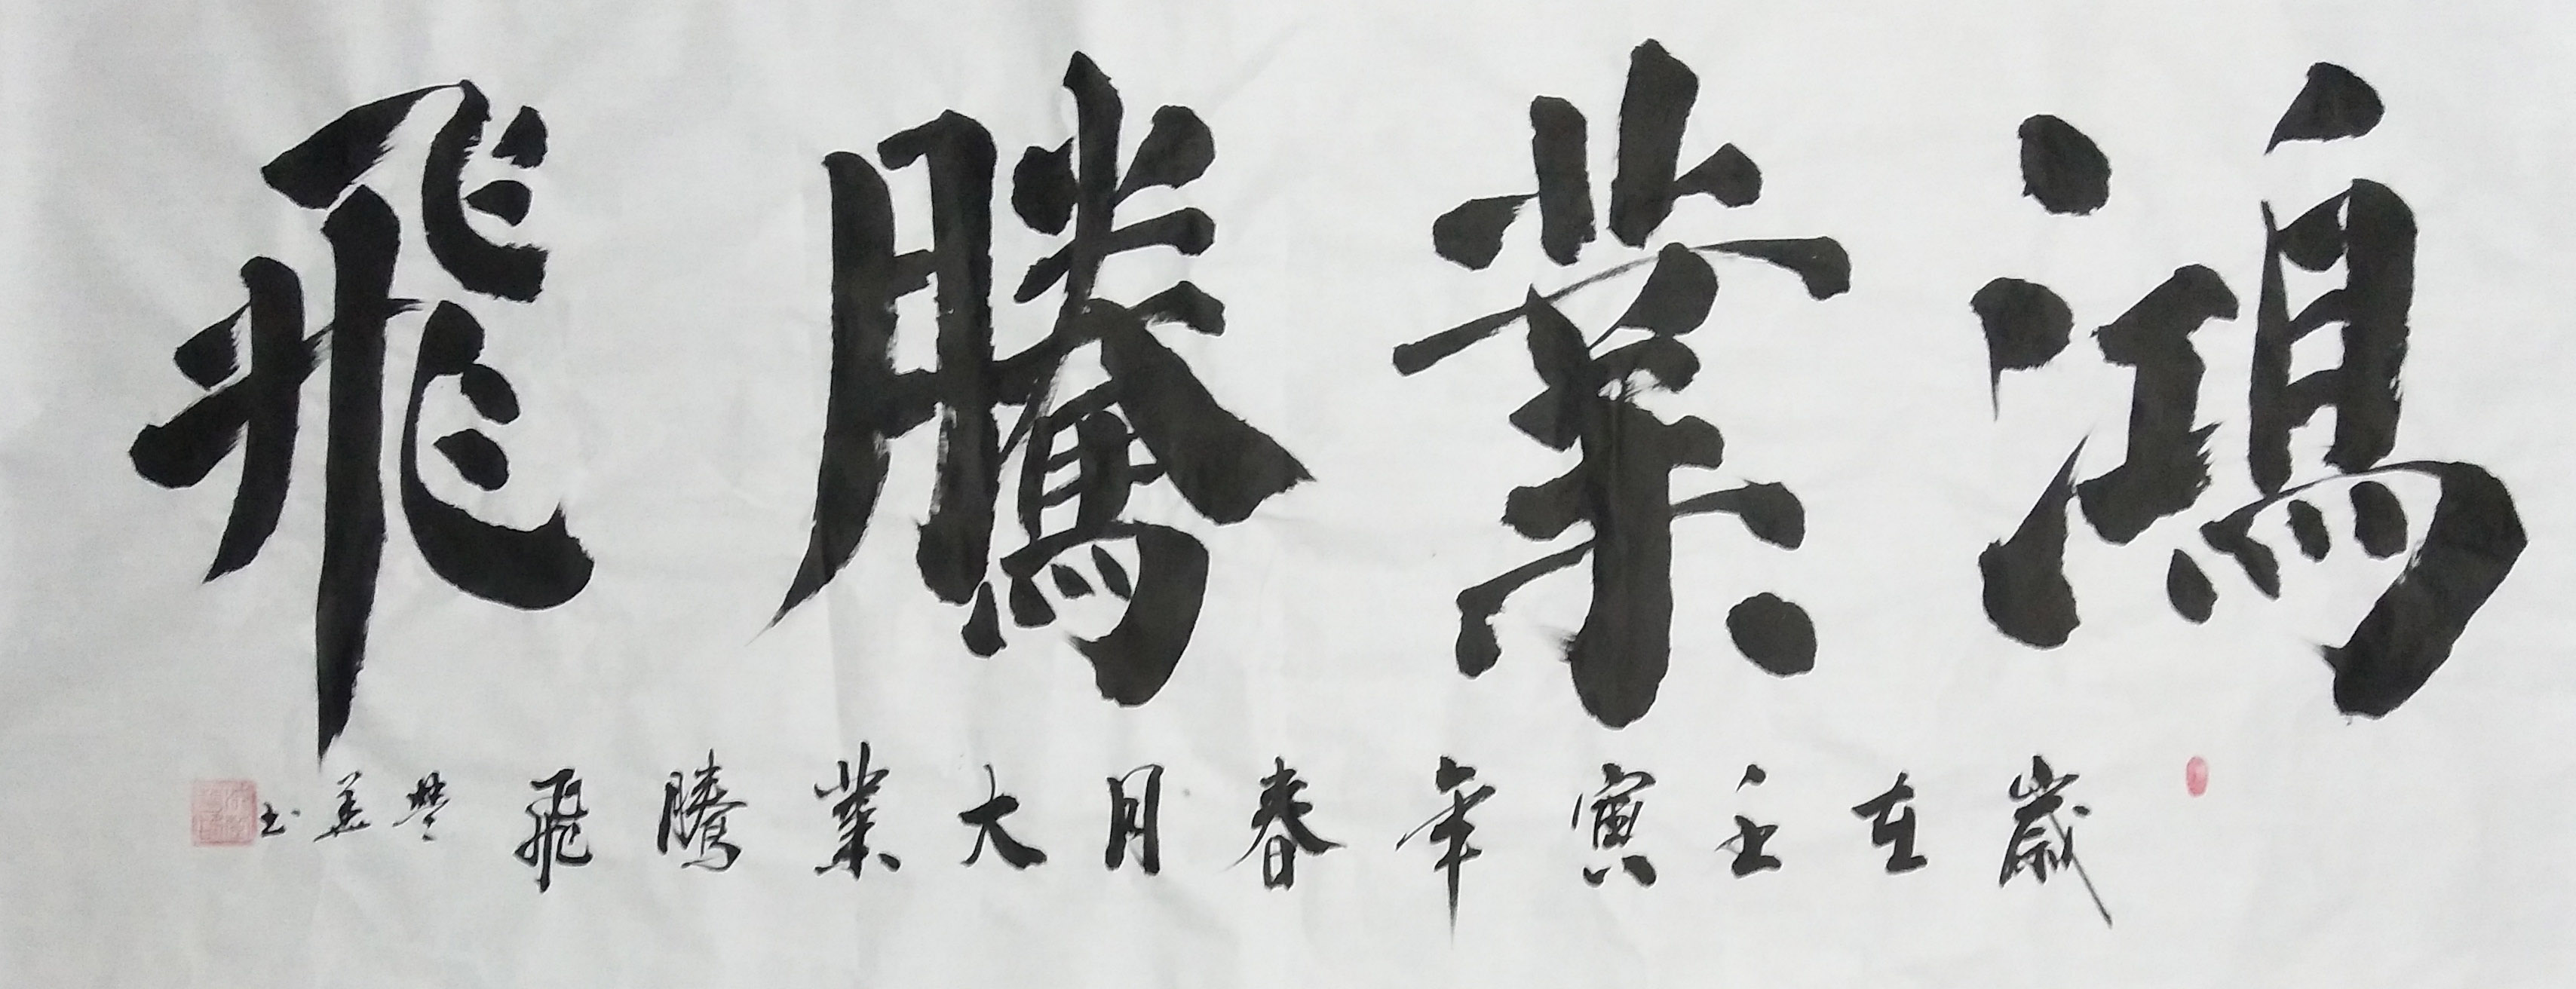 鴻業騰飛
歲在壬寅年春月大業騰飛